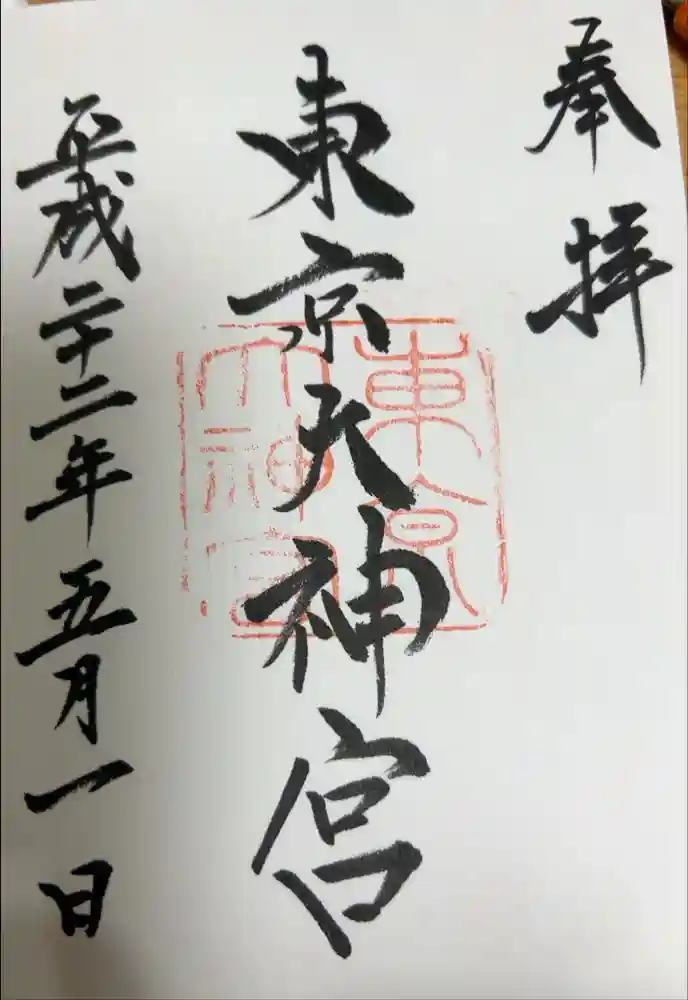 奉拝
東京天神宮
平成二十二年五月一日
東京
天神宮